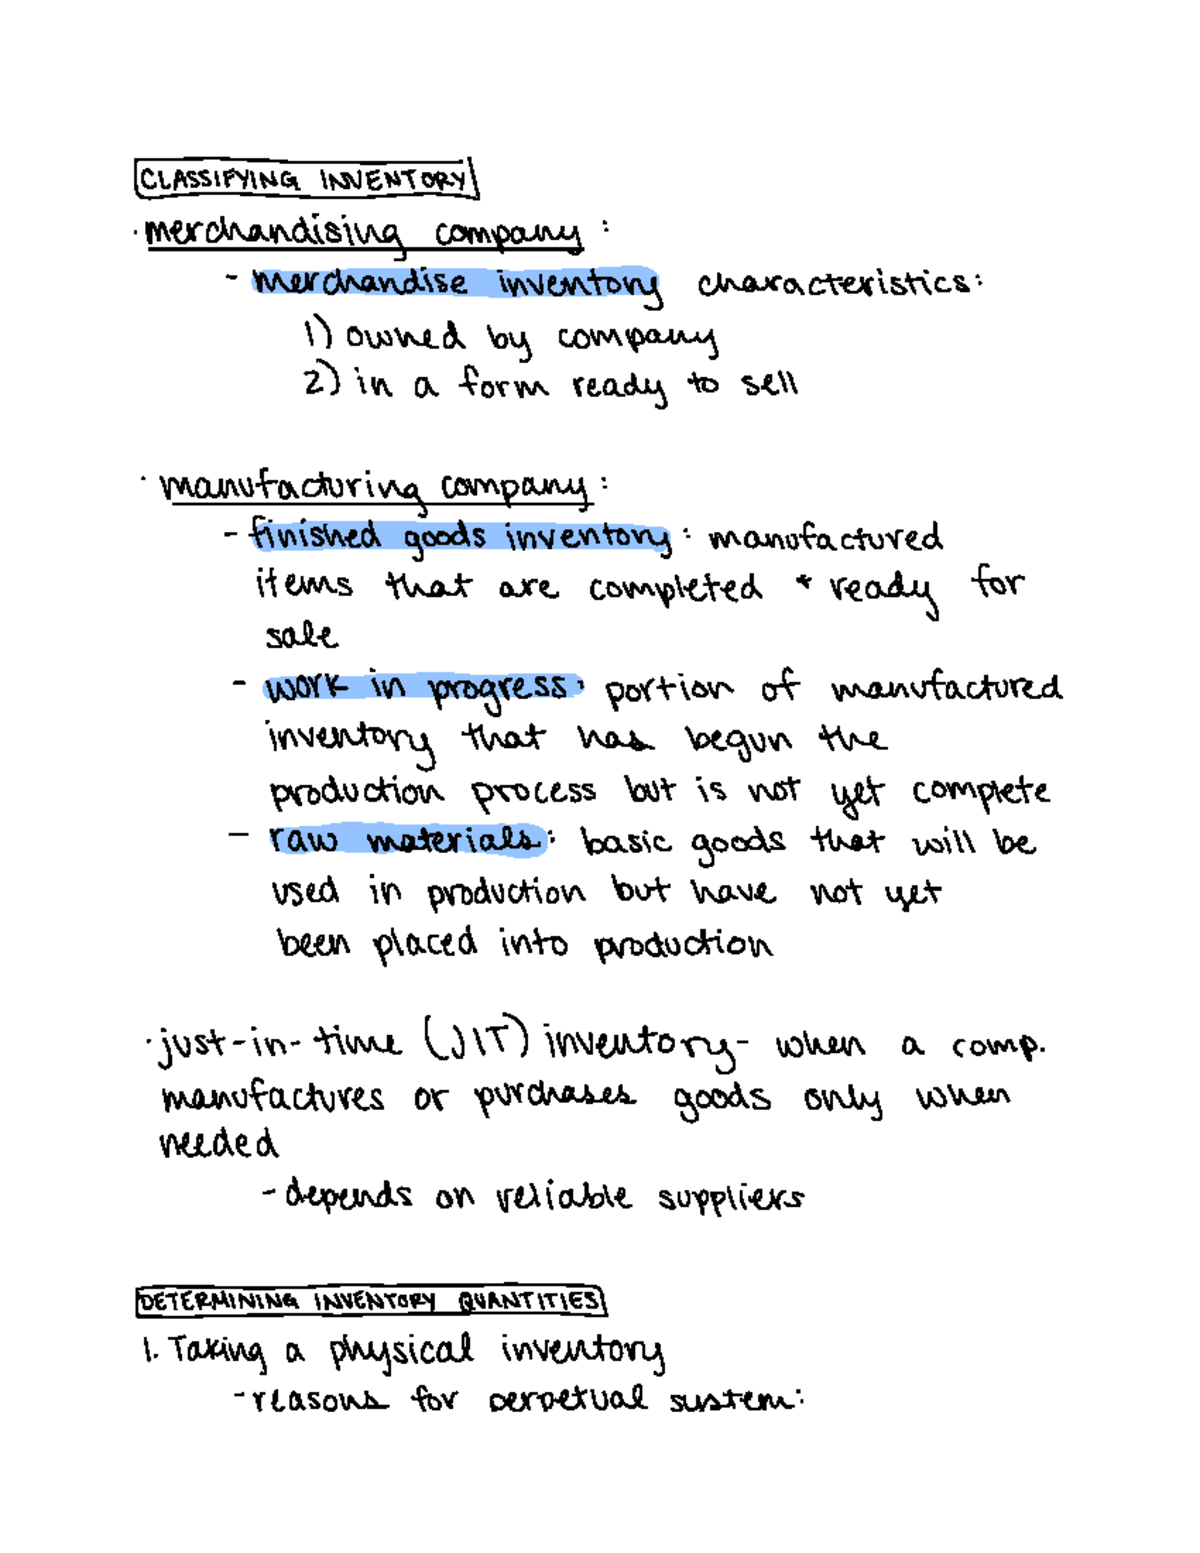 CLASSIFYING INVENTORY
· merchandising company :
- merchandise inventory characteristics:
1) owned by company
2) in a form ready to sell
· manufacturing company :
- finished goods inventory : manufactured
items that are completed + ready for
sale
- work in progress: portion of manufactured
inventory that has begun the
production process but is not yet complete
- raw materials: basic goods that will be
used in production but have not yet
been placed into production
· just-in-time (JIT) inventory- when a comp.
manufactures or purchases goods only when
needed
- depends on reliable suppliers
DETERMINING INVENTORY QUANTITIES
1. Taking a physical inventory
- reasons for perpetual system: